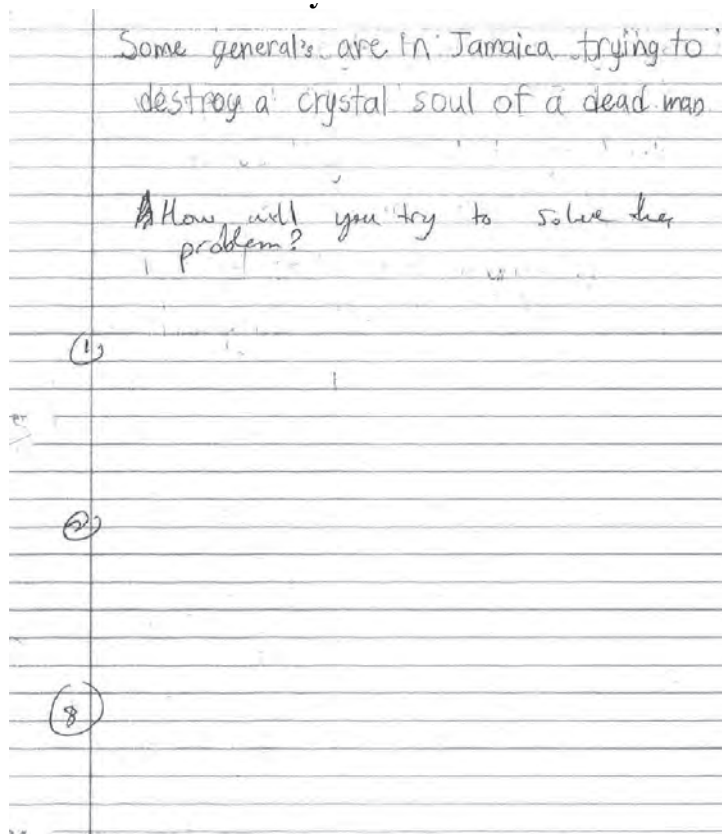 Some general's are in Jamaica trying to
destroy a crystal soul of a dead man
How will you try to solve the
problem?
1
er
2
8